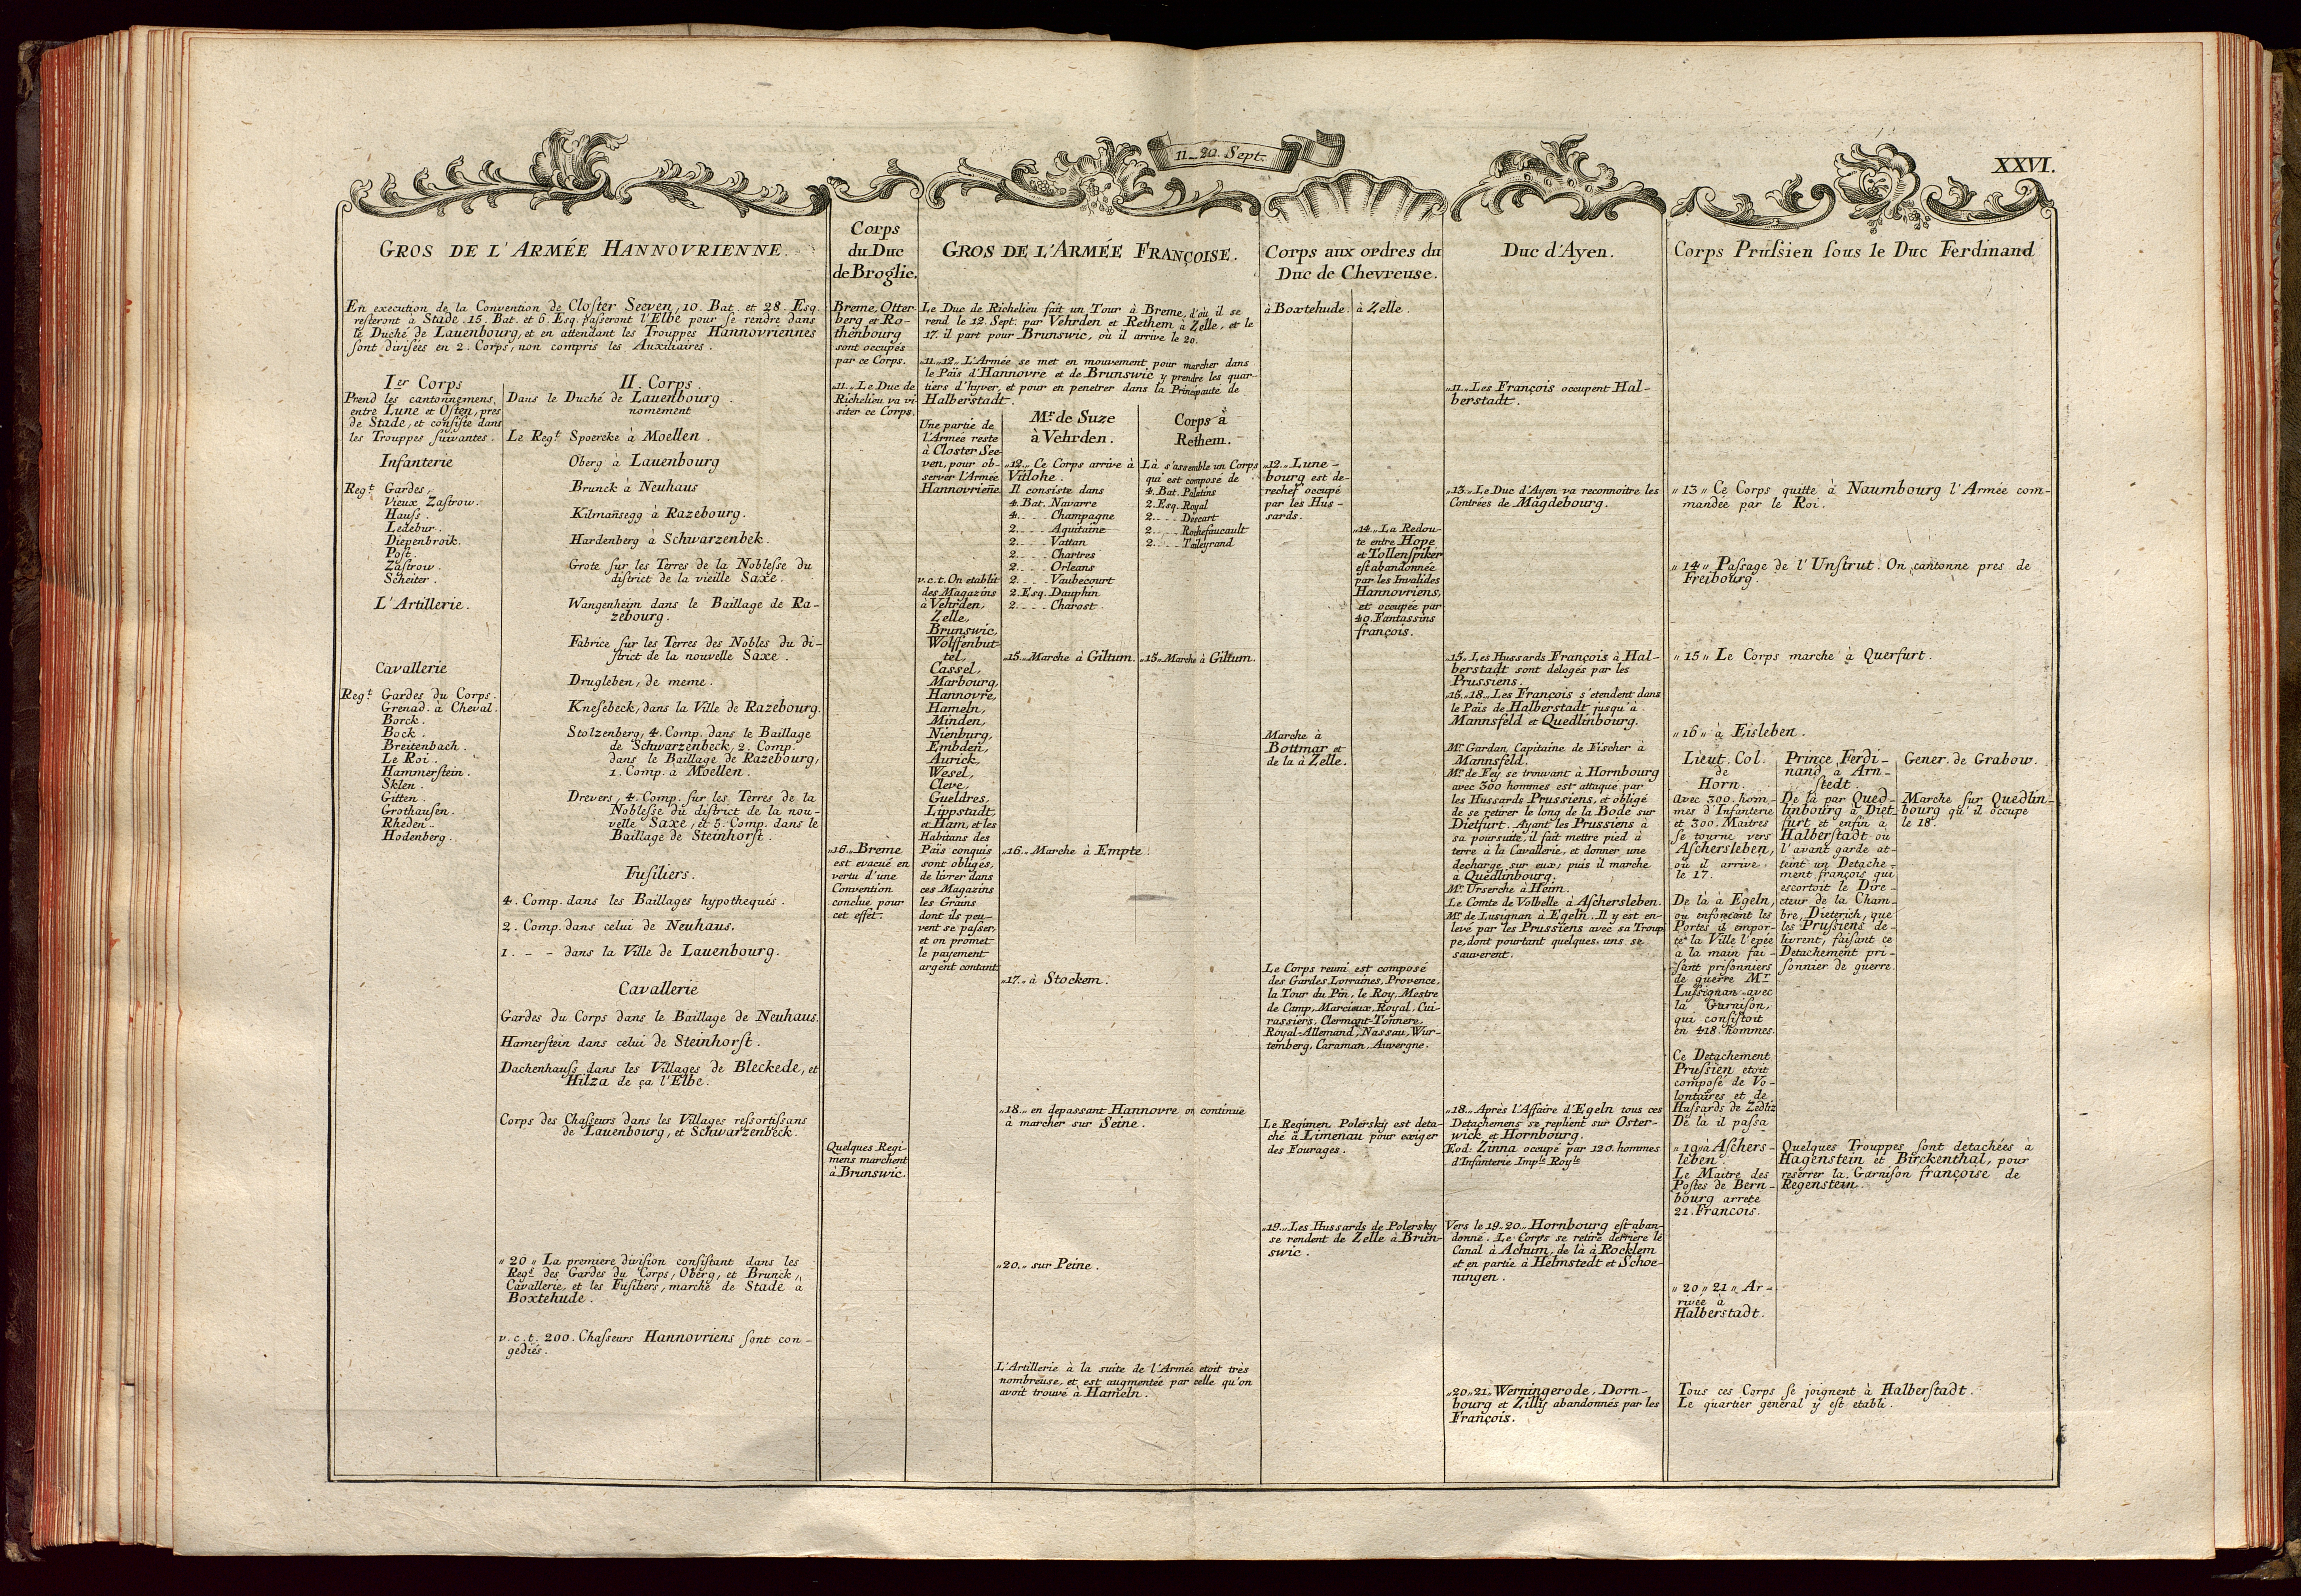 11_20. Sept.
XXVI.
GROS DE L'ARMÉE HANNOVRIENNE.
En execution de la Convention de Closter Seeven, 10. Bat. et 28. Esq.
resteront à Stade. 15. Bat. et 6. Esq. passeront l'Elbe pour se rendre dans
le Duché de Lauenbourg, et en attendant les Trouppes Hannovriennes
sont divisées en 2. Corps, non compris les Auxiliaires.
I.er Corps
Prend les cantonnemens
entre Lune et Osten, pres
de Stade, et consiste dans
les Trouppes suivantes.
Infanterie
Reg.t Gardes,
Vieux Zastrow.
Hauss.
Ledebur.
Diepenbroik.
Post.
Zastrow.
Scheiter.
L'Artillerie.
Cavallerie
Reg.t Gardes du Corps.
Grenad. à Cheval.
Borck.
Bock.
Breitenbach.
Le Roi.
Hammerstein.
Sklen.
Gitten.
Grothausen.
Rheden.
Hodenberg.
II. Corps.
Dans le Duché de Lauenbourg
nomement
Le Reg.t Spoercke à Moellen.
Oberg à Lauenbourg
Brunck à Neuhaus
Kilmañsegg à Razebourg.
Hardenberg à Schwarzenbek.
Grote sur les Terres de la Noblesse du
district de la vieille Saxe.
Wangenheim dans le Baillage de Ra-
zebourg.
Fabrice sur les Terres des Nobles du di-
strict de la nouvelle Saxe.
Drugleben, de meme.
Knesebeck, dans la Ville de Razebourg.
Stolzenberg, 4. Comp. dans le Baillage
de Schwarzenbeck, 2. Comp.
dans le Baillage de Razebourg,
1. Comp. à Moellen.
Drevers, 4. Comp. sur les Terres de la
Noblesse du district de la nou-
velle Saxe, et 5. Comp. dans le
Baillage de Steinhorst.
Fusiliers.
4. Comp. dans les Baillages hypothequés.
2. Comp. dans celui de Neuhaus.
1. - - dans la Ville de Lauenbourg.
Cavallerie
Gardes du Corps dans le Baillage de Neuhaus.
Hamerstein dans celui de Steinhorst.
Dachenhauss dans les Villages de Bleckede, et
Hilza de ça l'Elbe.
Corps des Chasseurs dans les Villages ressortissans
de Lauenbourg, et Schwarzenbeck.
„20„ La premiere division consistant dans les
Reg.s des Gardes du Corps, Oberg, et Brunck,
Cavallerie, et les Fusiliers, marche de Stade à
Boxtehude.
v.c.t. 200. Chasseurs Hannovriens sont con-
gediés.
Corps
du Duc
de Broglie.
Breme, Otter-
berg et Ro-
thenbourg
sont occupés
par ce Corps.
„11„ Le Duc de
Richelieu va vi-
siter ce Corps.
„16„ Breme
est evacué en
vertu d'une
Convention
conclue pour
cet effet.
Quelques Regi-
mens marchent
à Brunswic.
GROS DE L'ARMÉE FRANÇOISE.
Le Duc de Richelieu fait un Tour à Breme, d'où il se
rend le 12. Sept. par Vehrden et Rethem à Zelle, et le
17. il part pour Brunswic, où il arrive le 20.
„11„12„ L'Armée se met en mouvement pour marcher dans
le Païs d'Hannovre et de Brunswic y prendre les quar-
tiers d'hyver, et pour en penetrer dans la Principauté de
Halberstadt.
Une partie de
l'Armée reste
à Closter See-
ven, pour ob-
server l'Armée
Hannovrieñe.
v.c.t. On etablit
des Magazins
à Vehrden,
Zelle,
Brunswic,
Wolffenbut-
tel,
Cassel,
Marbourg,
Hannovre,
Hameln,
Minden,
Nienburg,
Embden,
Aurick,
Wesel,
Cleve,
Gueldres,
Lippstadt,
et Ham, et les
Habitans des
Païs conquis
sont obligés,
de livrer dans
ces Magazins
les Grains
dont ils peu-
vent se passer,
et on promet
le payement
argent contant.
M.r de Suze
à Vehrden.
„12„ Ce Corps arrive à
Vitlohe.
Il consiste dans
4. Bat. Navarre
4. - - - Champagne
2. - - - Aquitaine
2. - - - Vattan
2. - - - Chartres
2. - - - Orleans
2. - - - Vaubecourt
2. Esq. Dauphin
2. - - - Charost.
„15„ Marche à Giltum.
„16„ Marche à Empte
„17„ à Stockem.
„18„ en depassant Hannovre on continue
à marcher sur Seine.
„20„ sur Peine.
L'Artillerie à la suite de l'Armée etoit très
nombreuse, et est augmentée par celle qu'on
avoit trouvé à Hameln.
Corps à
Rethem.
Là s'assemble un Corps
qui est composé de
4. Bat. Poletins
2. Esq. Royal
2. - - - Descart
2. - - - Rochefaucault
2. - - - Taileyrand
„15„ Marche à Giltum.
Corps aux ordres du
Duc de Chevreuse.
à Boxtehude.
„12„ Lune-
bourg est de-
rechef occupé
par les Hus-
sards.
Marche à
Bottmar et
de la à Zelle.
à Zelle.
„14„ La Redou-
te entre Hope
et Tollenspiker
est abandonnée
par les Invalides
Hannovriens,
et occupée par
40. Fantassins
françois.
Le Corps reuni est composé
des Gardes Lorraines, Provence,
la Tour du Pin, le Roy, Mestre
de Camp, Marcieux, Royal, Cui-
rassiers, Clermont-Tonnere,
Royal-Allemand, Nassau, Wur-
temberg, Caraman, Auvergne.
Le Regimen Polerský est deta-
ché à Limenau pour exiger
des Fourages.
„19„ Les Hussards de Polerský
se rendent de Zelle à Brun-
swic.
Duc d'Ayen.
„11„ Les François occupent Hal-
berstadt.
„13„ Le Duc d'Ayen va reconnoitre les
Contrées de Magdebourg.
„15„ Les Hussards François à Hal-
berstadt sont delogés par les
Prussiens.
„15„18„ Les François s'etendent dans
le Païs de Halberstadt jusqu'à
Mannsfeld et Quedlinbourg.
M.r Gardan, Capitaine de Fischer à
Mannsfeld.
M.r de Fey se trouvant à Hornbourg
avec 300 hommes est attaqué par
les Hussards Prussiens, et obligé
de se retirer le long de la Bode sur
Dietfurt. Ayant les Prussiens à
sa poursuite, il fait mettre pied à
terre à la Cavallerie, et donner une
decharge sur eux; puis il marche
à Quedlinbourg.
M.r Urserche à Heim.
Le Comte de Volbelle à Aschersleben.
M.r de Lusignan à Egeln. Il y est en-
levé par les Prussiens avec sa Troup-
pe, dont pourtant quelques uns se
sauverent.
„18„ Après l'Affaire d'Egeln tous ces
Detachemens se replient sur Oster-
wick et Hornbourg.
Eod: Zinna occupé par 120. hommes
d'Infanterie Imp.ls Roy.ls
Vers le 19.20. Hornbourg est aban-
donné. Le Corps se retire derriere le
Canal à Achum, de là à Rocklem
et en partie à Helmstedt et Schoe-
ningen.
„20„21„ Werningerode, Dorn-
bourg et Zilly abandonnés par les
François.
Corps Prussien sous le Duc Ferdinand
„13„ Ce Corps quitte à Naumbourg l'Armée com-
mandée par le Roi.
„14„ Passage de l'Unstrut. On cantonne pres de
Freibourg.
„15„ Le Corps marche à Querfurt.
„16„ à Eisleben.
Lieut. Col.
de
Horn.
Avec 300. hom-
mes d'Infanterie
et 300. Maitres
se tourne vers
Aschersleben,
où il arrive
le 17.
De là à Egeln,
où enfoncant les
Portes il empor-
te la Ville l'epée
à la main fai-
sant prisonniers
de guerre M.r
Lussignan avec
la Garnison,
qui consistoit
en 418. hommes.
Ce Detachement
Prussien etoit
composé de Vo-
lontaires et de
Hussards de Zedliz
De là il passa
„19„ à Aschers-
leben.
Le Maitre des
Postes de Bern-
bourg arrete
21. Francois.
„20„21„ Ar-
rivée à
Halberstadt.
Prince Ferdi-
nand à Arn-
stedt.
De là par Qued-
linbourg à Diet-
furt et enfin à
Halberstadt où
l'avant garde at-
teint un Detache-
ment françois qui
escortoit le Dire-
cteur de la Cham-
bre, Dieterich, que
les Prussiens de-
livrent, faisant ce
Detachement pri-
sonnier de guerre.
Gener. de Grabow.
Marche sur Quedlin-
bourg qu'il occupe
le 18.
Quelques Trouppes sont detachées à
Hagenstein et Birckenthal, pour
reserrer la Garnison françoise de
Regenstein.
Tous ces Corps se joignent à Halberstadt.
Le quartier general y est etabli.